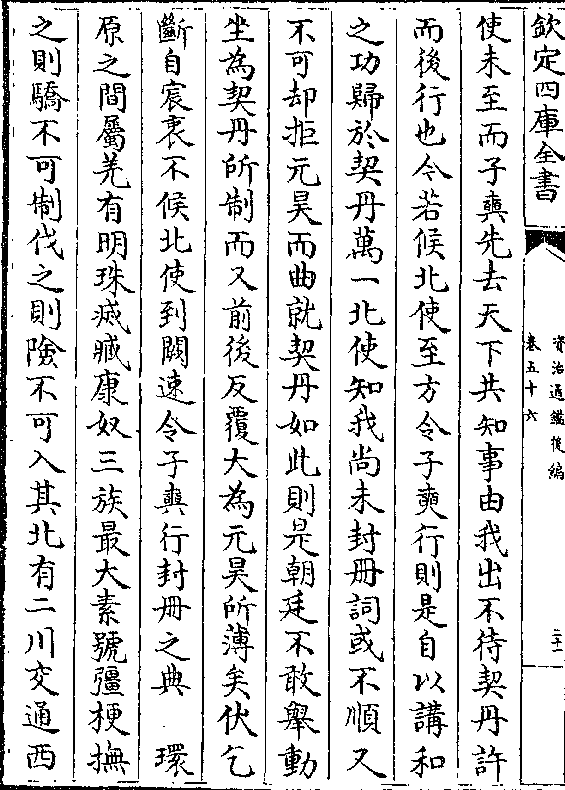 欽定四庫全書
資治通鑑後編
卷五十六
二十一
使未至而子奭先去天下共知事由我出不待契丹許
而後行也今若候北使至方令子奭行則是自以講和
之功歸於契丹萬一北使知我尚未封册詞或不順又
不可却拒元昊而曲就契丹如此則是朝廷不敢舉動
坐為契丹所制而又前後反覆大為元昊所薄矣伏乞
斷自宸衷不候北使到闕速令子奭行封册之典　環
原之間屬羌有明珠㓕臧康奴三族最大素號彊梗撫
之則驕不可制伐之則險不可入其北有二川交通西